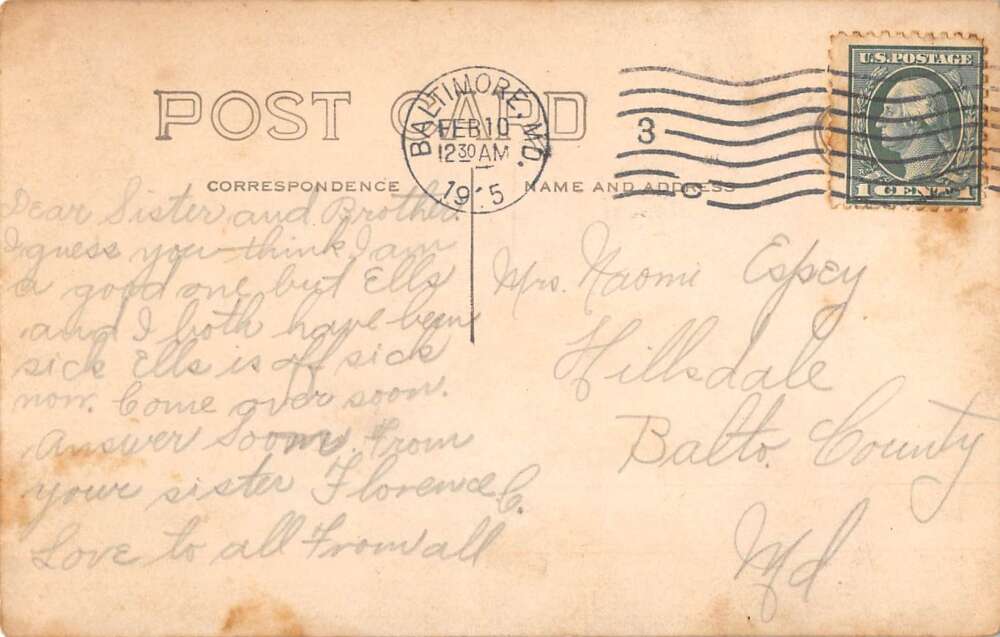 POST CARD
BALTIMORE, MD.
FEB 10
12 30 AM
1915
3
C
U.S. POSTAGE
1 CENT 1
CORRESPONDENCE
NAME AND ADDRESS
Dear Sister and Brother.
I guess you think I am
a good one but Ells
and I both have been
sick Ells is off sick
now. Come over soon.
Answer Soon. From
your sister Florence C.
Love to all From all
Mrs. Naomi Espey
Hillsdale
Balto. County
Md